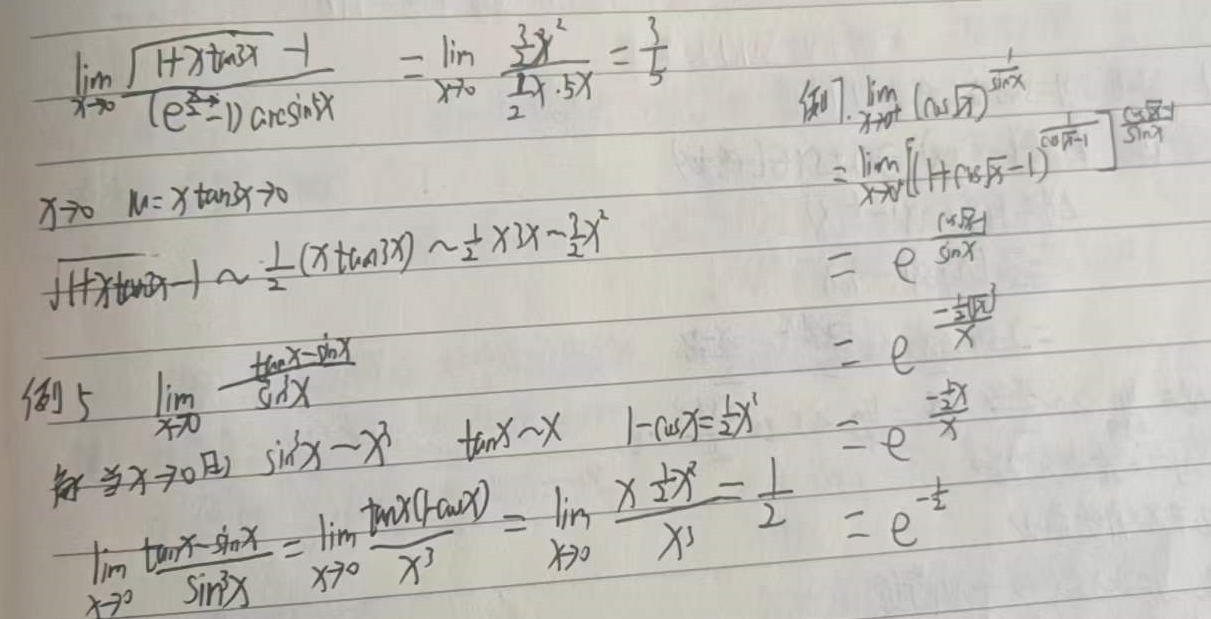 lim x→0 (√(1+x tan3x) - 1) / ((e^(x/2) - 1) arcsin5x) = lim x→0 (3/2 x²) / (1/2 x · 5x) = 3/5
x→0 u = x tan3x→0
√(1+x tan3x) - 1 ~ 1/2 (x tan3x) ~ 1/2 x 3x ~ 3/2 x²
例5 lim x→0 (tanx - sinx) / sin³x
当x→0时 sin³x ~ x³ tanx ~ x 1-cosx = 1/2 x²
lim x→0 (tanx - sinx) / sin³x = lim x→0 tanx(1-cosx) / x³ = lim x→0 (x 1/2 x²) / x³ = 1/2
例7. lim x→0⁺ (cos√x)^(1/sinx)
= lim x→0⁺ [(1+cos√x - 1)^(1/(cos√x-1))]^((cos√x-1)/sinx)
= e^((cos√x-1)/sinx)
= e^(-1/2(√x)²/x)
= e^(-1/2 x/x)
= e^(-1/2)